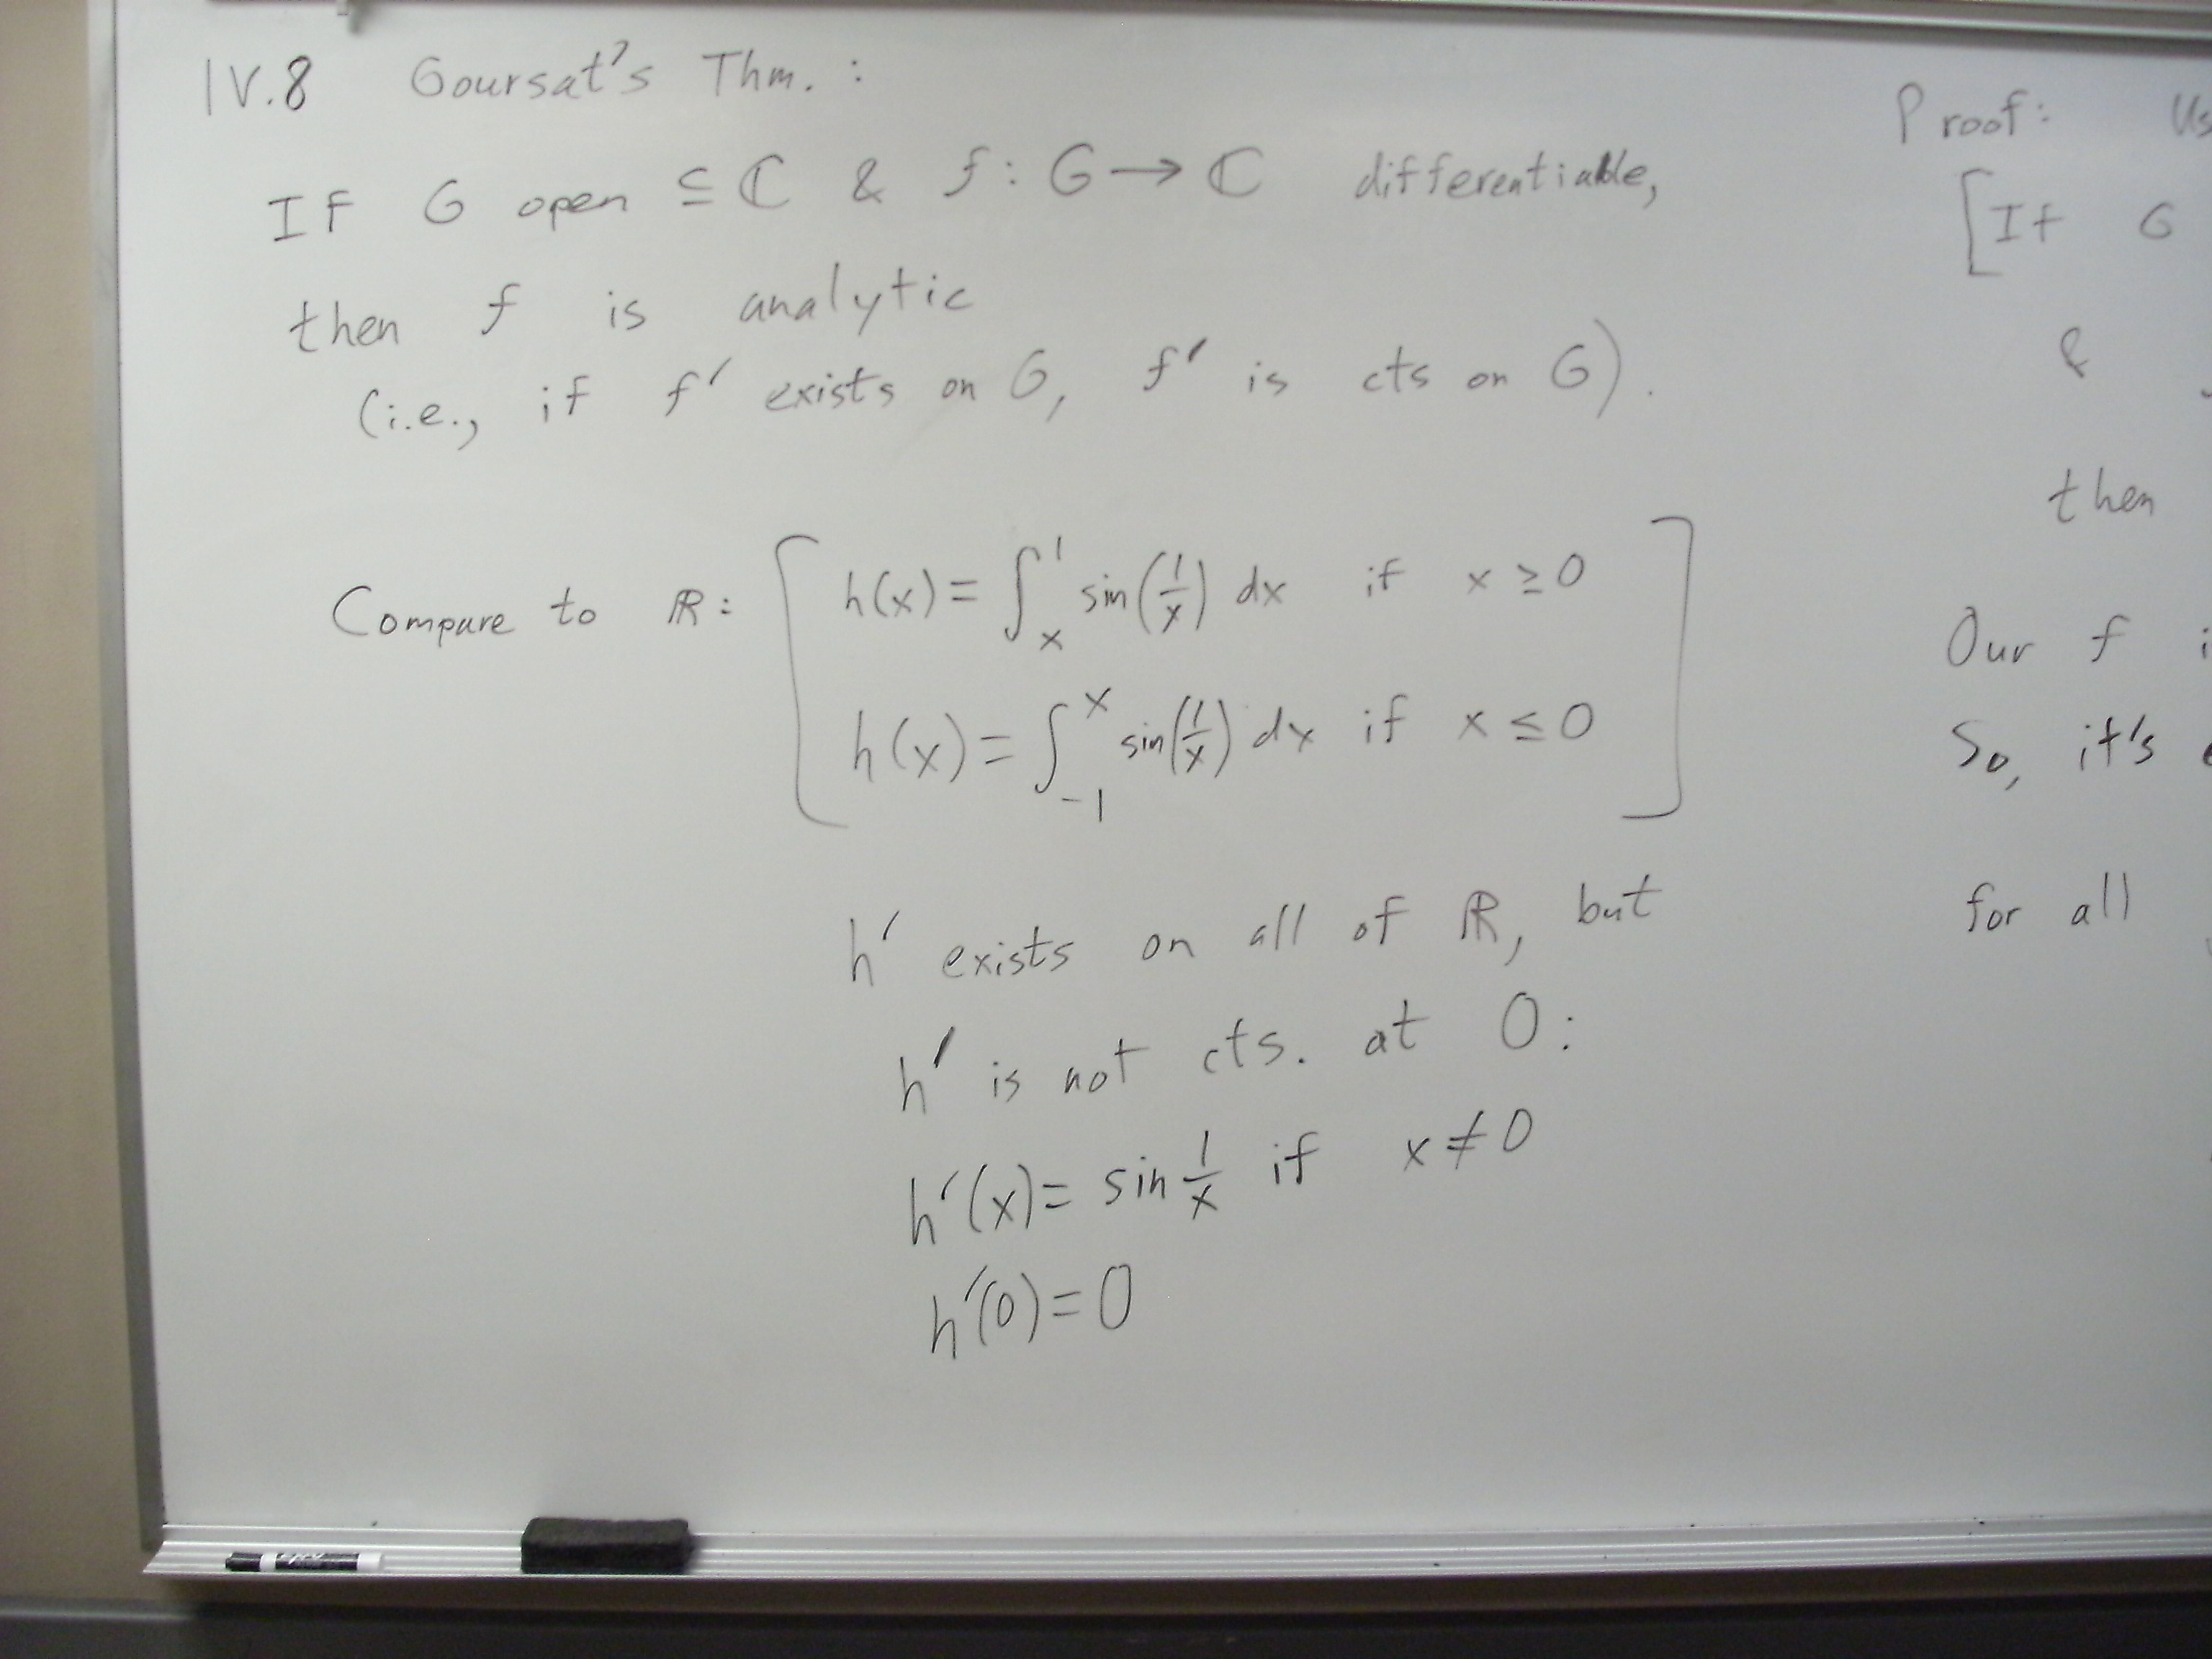 IV.8 Goursat's Thm.:
If G open ⊆ ℂ & f: G → ℂ differentiable,
then f is analytic
(i.e., if f′ exists on G, f′ is cts on G).
Compare to ℝ:
h(x) = ∫_x^1 sin(1/x) dx if x ≥ 0
h(x) = ∫_{-1}^x sin(1/x) dx if x ≤ 0
h′ exists on all of ℝ, but
h′ is not cts. at 0:
h′(x) = sin 1/x if x ≠ 0
h′(0) = 0
Proof:
[If G
&
then
Our f
So, it's
for all